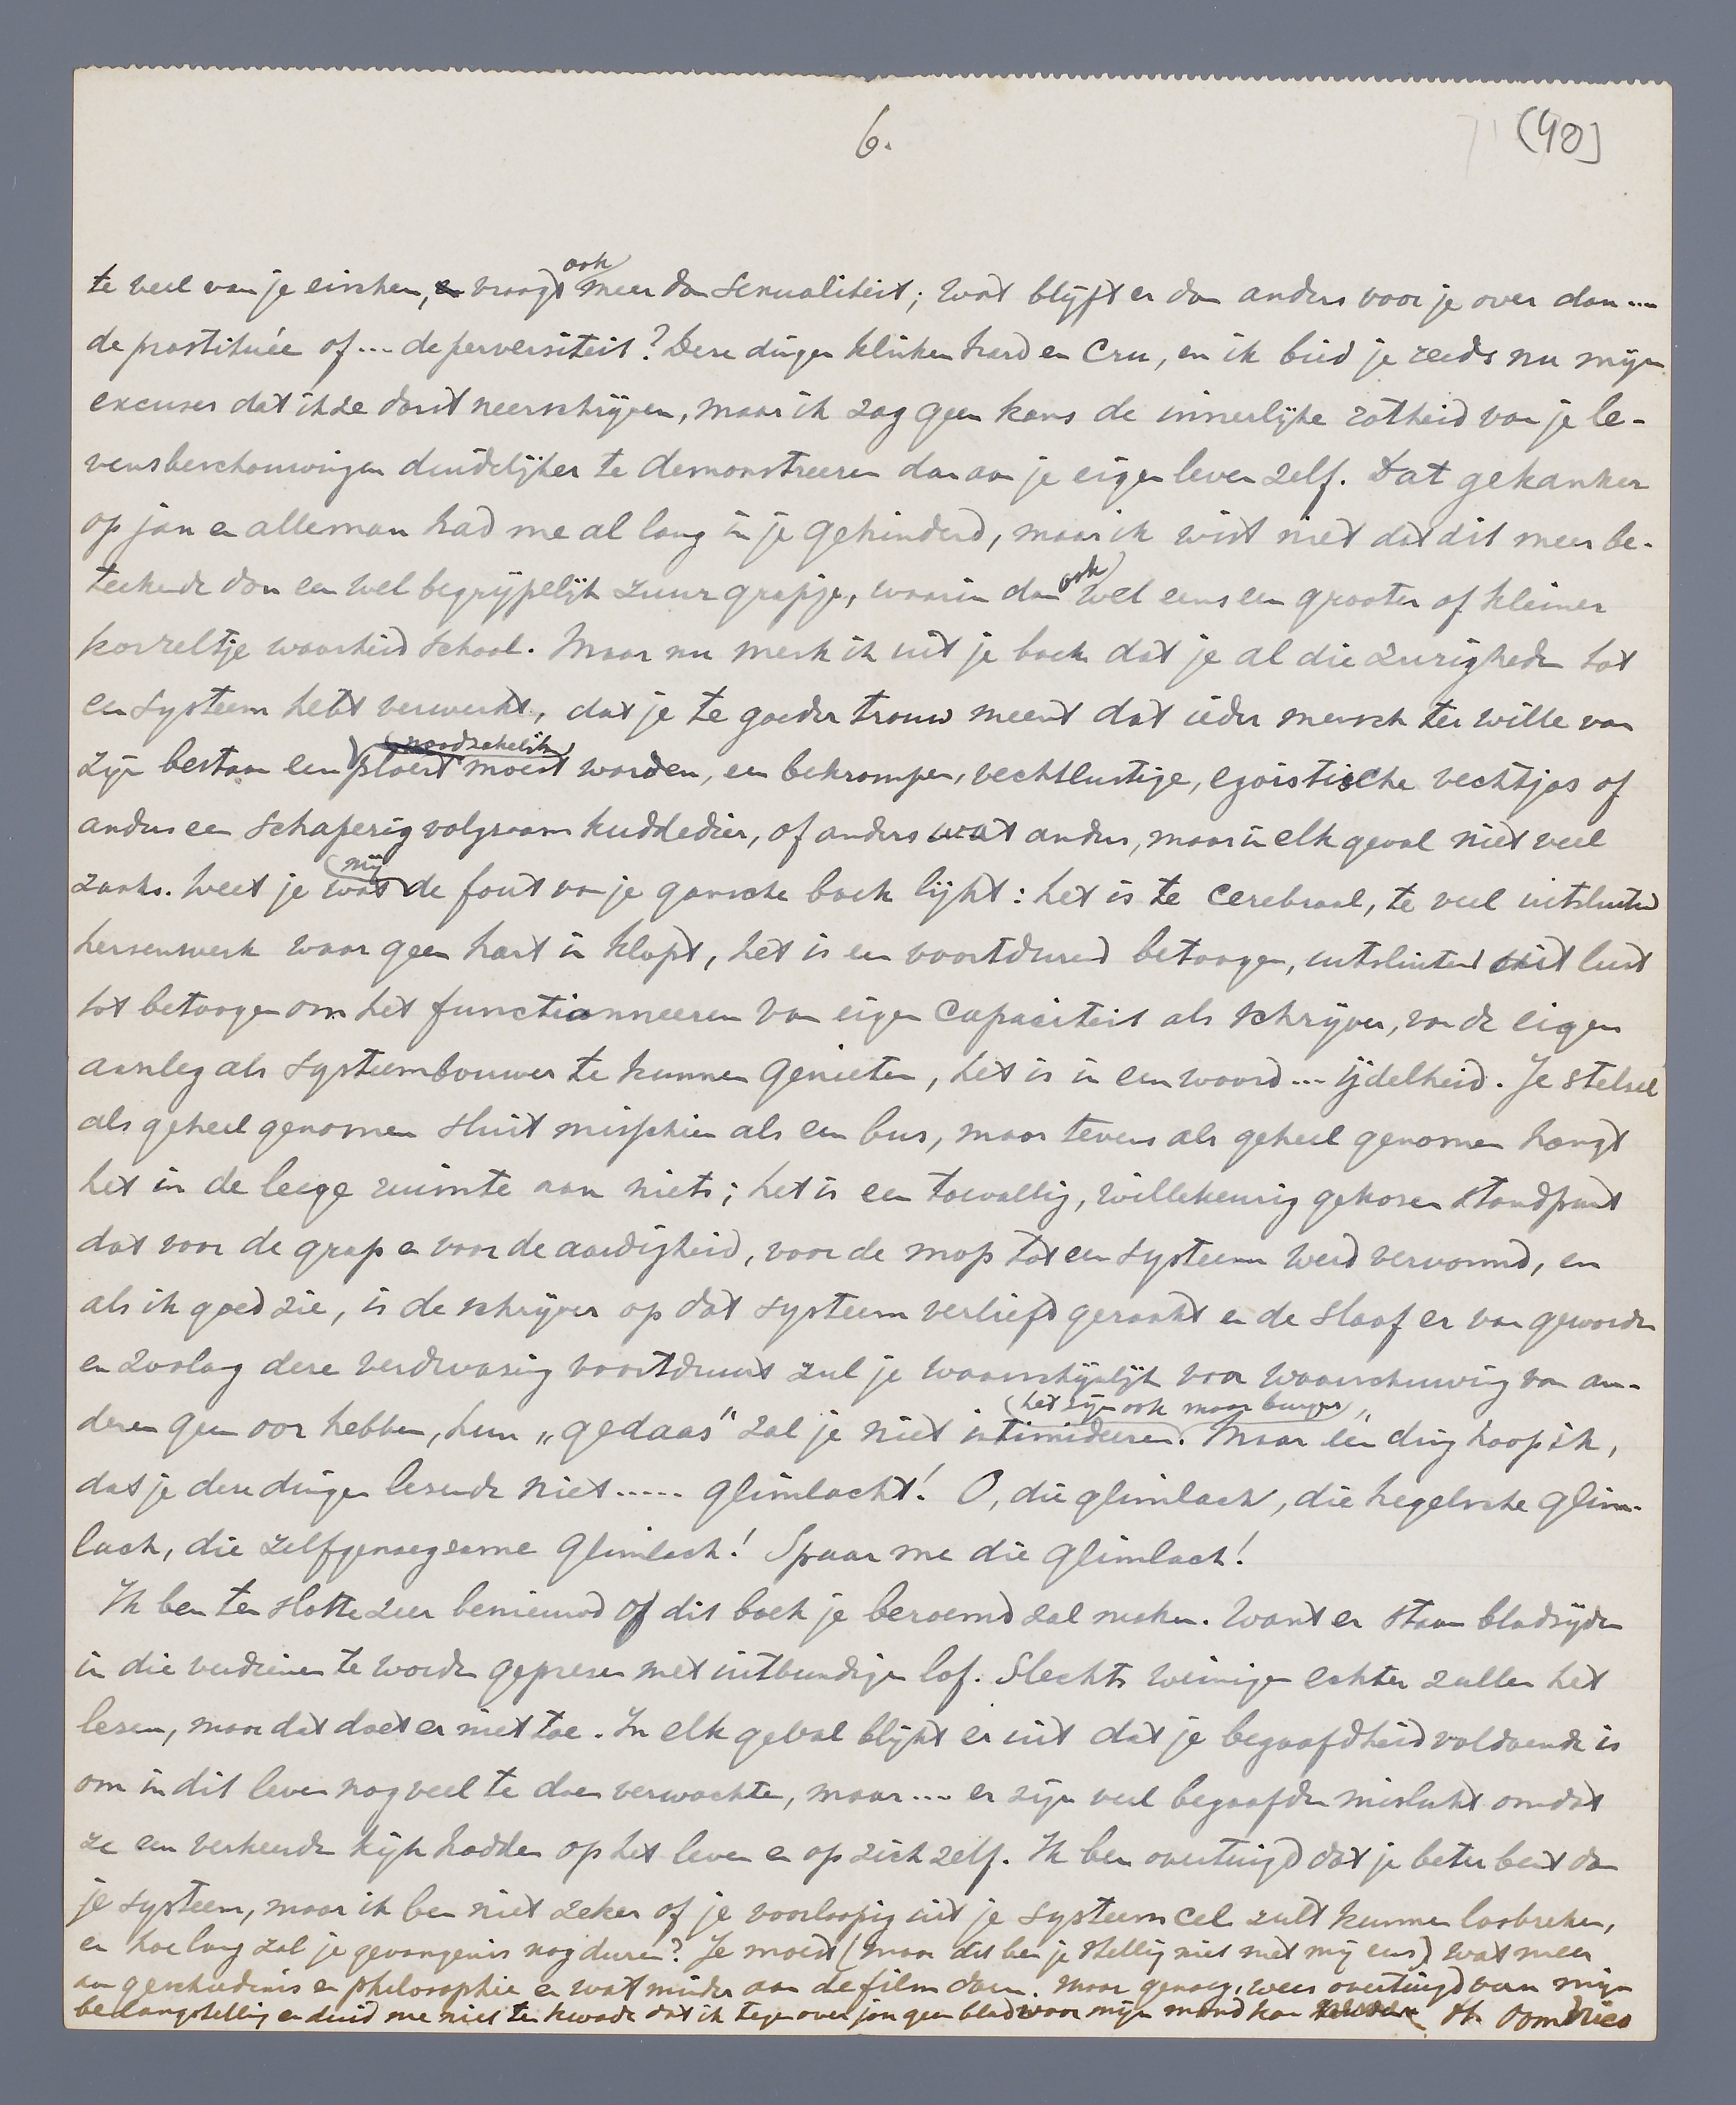 6.
(40)
te veel van je eischen, vraagt ook meer dan sexualiteit; wat blijft er dan anders voor je over dan ....
de prostituée of ... de perversiteit? Deze dingen klinken hard en cru, en ik bied je reeds nu mijn
excuses dat ik ze dorst neerschrijven, maar ik zag geen kans de innerlijke zotheid van je le-
vensbeschouwingen duidelijker te demonstreeren dan aan je eigen leven zelf. Dat gekanker
op jan en alleman had me al lang in je gehinderd, maar ik wist niet dat dit meer be-
teekende dan een wel begrijpelijk zuur grapje, waarin dan ook wel eens een grooter of kleiner
korreltje waarheid school. Maar nu merk ik uit je boek dat je al die zurigheden tot
een systeem hebt verwerkt, dat je te goeder trouw meent dat ieder mensch ter wille van
zijn bestaan een ploert moest worden, een bekrompen, vechtlustige, egoistische vechtjas of
anders een schaperig volgzaam kuddedier, of anders wat anders, maar in elk geval niet veel
zaaks. Weet je wat mij de fout van je gansche boek lijkt: het is te cerebraal, te veel uitsluitend
hersenwerk waar geen hart in klopt, het is een voortdurend betoogen, uitsluitend uit lust
tot betoogen om het functionneeren van eigen capaciteit als schrijver, van de eigen
aanleg als systeembouwer te kunnen genieten, het is in een woord ... ijdelheid. Je stelsel
als geheel genomen sluit misschien als een bus, maar tevens als geheel genomen hangt
het in de leege ruimte aan niets; het is een toevallig, willekeurig gekozen standpunt
dat voor de grap en voor de aardigheid, voor de mop tot een systeem werd vervormd, en
als ik goed zie, is de schrijver op dat systeem verliefd geraakt en de slaaf er van geworden
en zoolang deze verdwazing voortduurt zul je waarschijnlijk voor waarschuwing van an-
deren geen oor hebben, hun „gedaas" zal je niet intimideeren (het zijn ook maar burgers). Maar één ding hoop ik,
dat je deze dingen lezende niet ..... glimlacht! O, die glimlach, die hegelsche glim-
lach, die zelfgenoegzame glimlach! Spaar me die glimlach!
Ik ben ten slotte zeer benieuwd of dit boek je beroemd zal maken. Want er staan bladzijden
in die verdienen te worden geprezen met uitbundigen lof. Slechts weinigen echter zullen het
lezen, maar dat doet er niet toe. In elk geval blijkt er uit dat je begaafdheid voldoende is
om in dit leven nog veel te doen verwachten, maar .... er zijn veel begaafden mislukt omdat
ze een verkeerden kijk hadden op het leven en op zich zelf. Ik ben overtuigd dat je beter bent dan
je systeem, maar ik ben niet zeker of je voorloopig uit je systeemcel zult kunnen losbreken,
en hoe lang zal je gevangenis nog duren? Je moest (maar dit ben je stellig niet met mij eens) wat meer
aan geschiedenis en philosophie en wat minder aan de film doen. Maar genoeg, wees overtuigd van mijn
belangstelling en duid me niet ten kwade dat ik tegenover jou geen blad voor mijn mond kan houden. Oom Dries